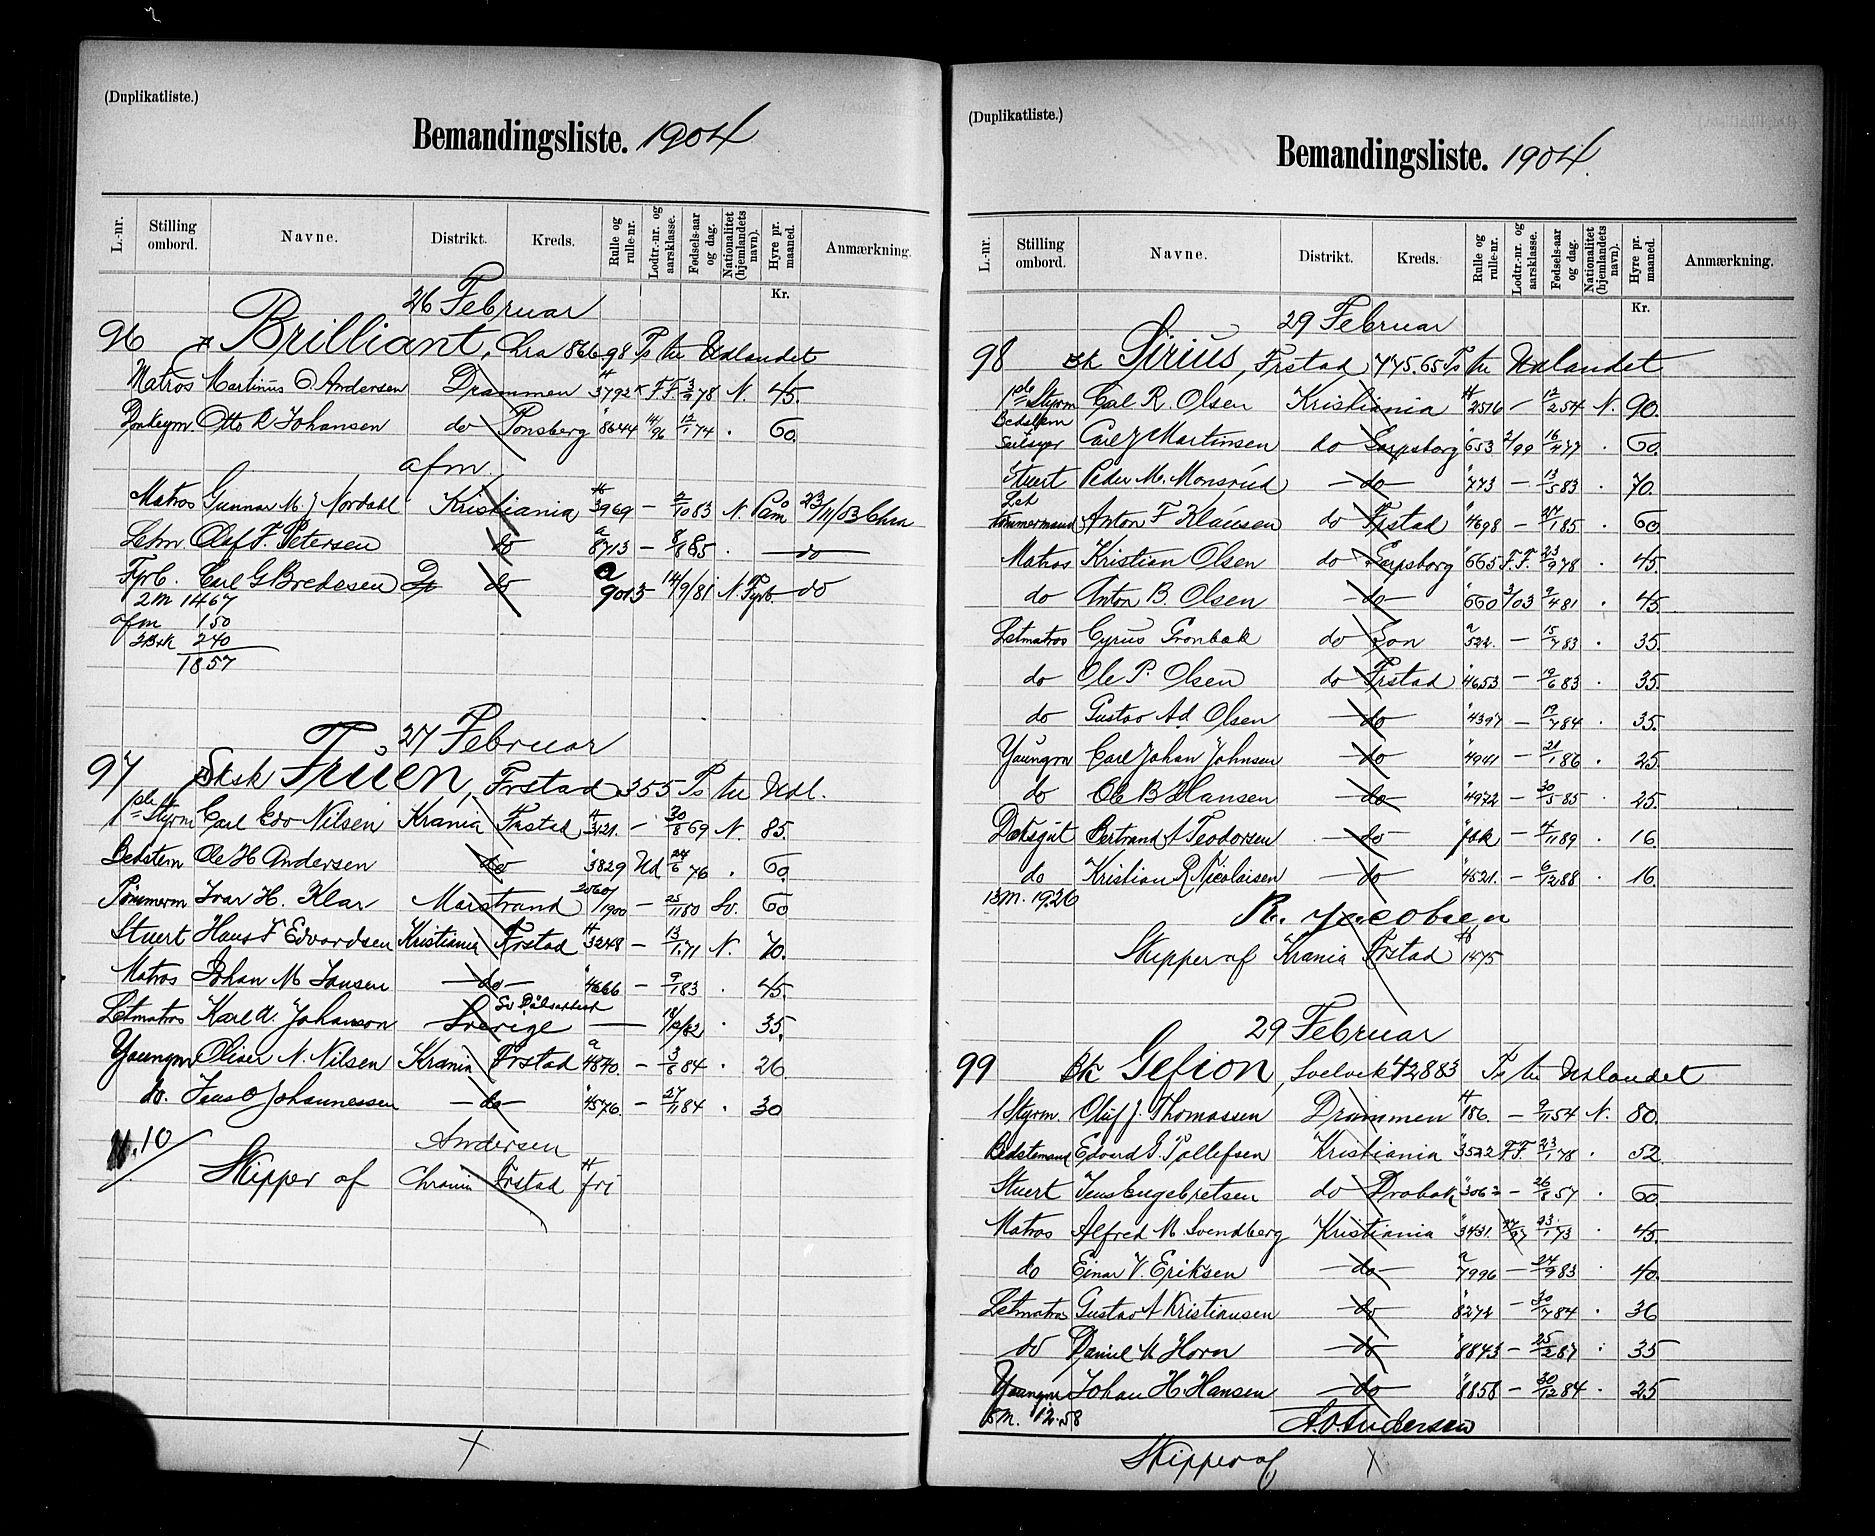 (Duplikatliste.)
Bemandingsliste. 1904
L.-nr. Stilling ombord. Navne. Distrikt. Kreds. Rulle og rulle-nr. Lodtr.-nr. og aarsklasse. Fødsels-aar og dag. Nationalitet (hjemlandets navn). Hyre pr. maaned. Anmærkning.
Kr.
26 Februar
96 Brilliant, Chra 866.98 Ts til Udlandet
Matros Martinus O. Andersen Drammen 3792 F.F. 3/2 78 N. 45.
Otto R Johansen do Tønsberg 8644 14/96 12/1 74 . 60.
afm.
Matros Gunnar M. J Nordahl Kristiania 3969 — 2/10 83 N. Paam 23/11/03 Chra
Letm. Olaf F. Petersen do 8713 — 8/8 85 . — do —
Fyrb. Carl G Bredesen do 9013 — 14/9/81 N. Fyrb. do
2 M 1467
afm 150
240
1857
27 Februar
97 Sksk Fruen, Frstad 355 Ts til Udl.
1ste Styrm Carl Edv Nilsen Krania Frstad 3121. — 30/8 69 N. 85.
Bedstem Ole H Andersen do 3829 Ud 24/6 76 . 60.
Tømmerm Ivar H. Klar Marstrand 2560/1900 — 25/11 80 Sv. 60
Stuert Hans F Edvardsen Kristiania Frstad 3248 — 13/1 71 N. 70.
Matros Johan M Jansen — do — 4666 — 9/1 83 . 45.
Letmatros Karl A. Johanson Sverige — 35.
Youngm Oliver N. Nilsen Krania Frstad 4840. — 3/8 84 . 26
do. Jens O Johannessen — do — 4576. — 27/11 84 . 30
10
Andersen
Skipper af Chrania Frstad fri
(Duplikatliste.)
Bemandingsliste. 1904.
L.-nr. Stilling ombord. Navne. Distrikt. Kreds. Rulle og rulle-nr. Lodtr.-nr. og aarsklasse. Fødsels-aar og dag. Nationalitet (hjemlandets navn). Hyre pr. maaned. Anmærkning.
Kr.
29 Februar
98 Bk Sirius, Frstad 775.65 Ts til Udlandet
1ste Styrm Carl R. Olsen Kristiania 2516 — 12/2 54 N. 90.
Bedstem
Seilmager Carl J Martinsen do Sarpsborg 653 2/99 16/4 77 . 60.
Stuert Peder M. Monsrud — do — 773 — 13/5 83 . 70.
Let
tømmermand Anton F Klausen do Frstad 4698 — 27/1 85 . 60
Matros Kristian Olsen do Sarpsborg 665 F.F. 23/9 78 . 45.
do Anton B. Olsen — do — 660 3/03 9/4 81 . 45
Letmatros Cyrus Grønbæk do Son 522. — 15/7 83 . 35.
do Ole P. Olsen do Frstad 4653 — 19/6 83 . 35.
do Gustav Ad Olsen — do — 4397 — 19/7 84 . 35.
Youngm Carl Johan Johnsen — do — 4941 — 21/1 86 . 25.
do Ole B Hansen — do — 4972 — 30/5 85 . 25.
Dæksgut Bertrand A Teodorsen — do — — 4/11 89 . 16.
do Kristian R Nicolaisen — do — 4521. — 6/12 88 . 16.
13 M. 1926
R. Jacobsen
Skipper af Krania Frstad 1475
29 Februar
99 Bk Gefion, Svelvik 428.83 Ts til Udlandet
1 Styrm. Oluf J. Thomassen Drammen 186. — 9/11 54 N. 80.
Bedstemand Edvard S. Tollefsen Kristiania 3522 F.F 23/1 78 . 52.
Stuert Jens Engebretsen do Drøbak 3062 — 26/8 57 . 60.
Matros Alfred M. Svendberg Kristiania 3431. 23/1 73 . 45.
do Einar V. Eriksen — do — 7996 — 24/9 83 . 40.
Letmatro Gustav A Kristiansen — do — 8272 — 30/7 84 . 36
do Daniel K Horn — do — 8843 — 25/2 87 . 35
Youngm Johan H. Hansen — do — 8858 — 30/12 84 . 25
8 M. 12.58
A. O. Andersen
Skipper af